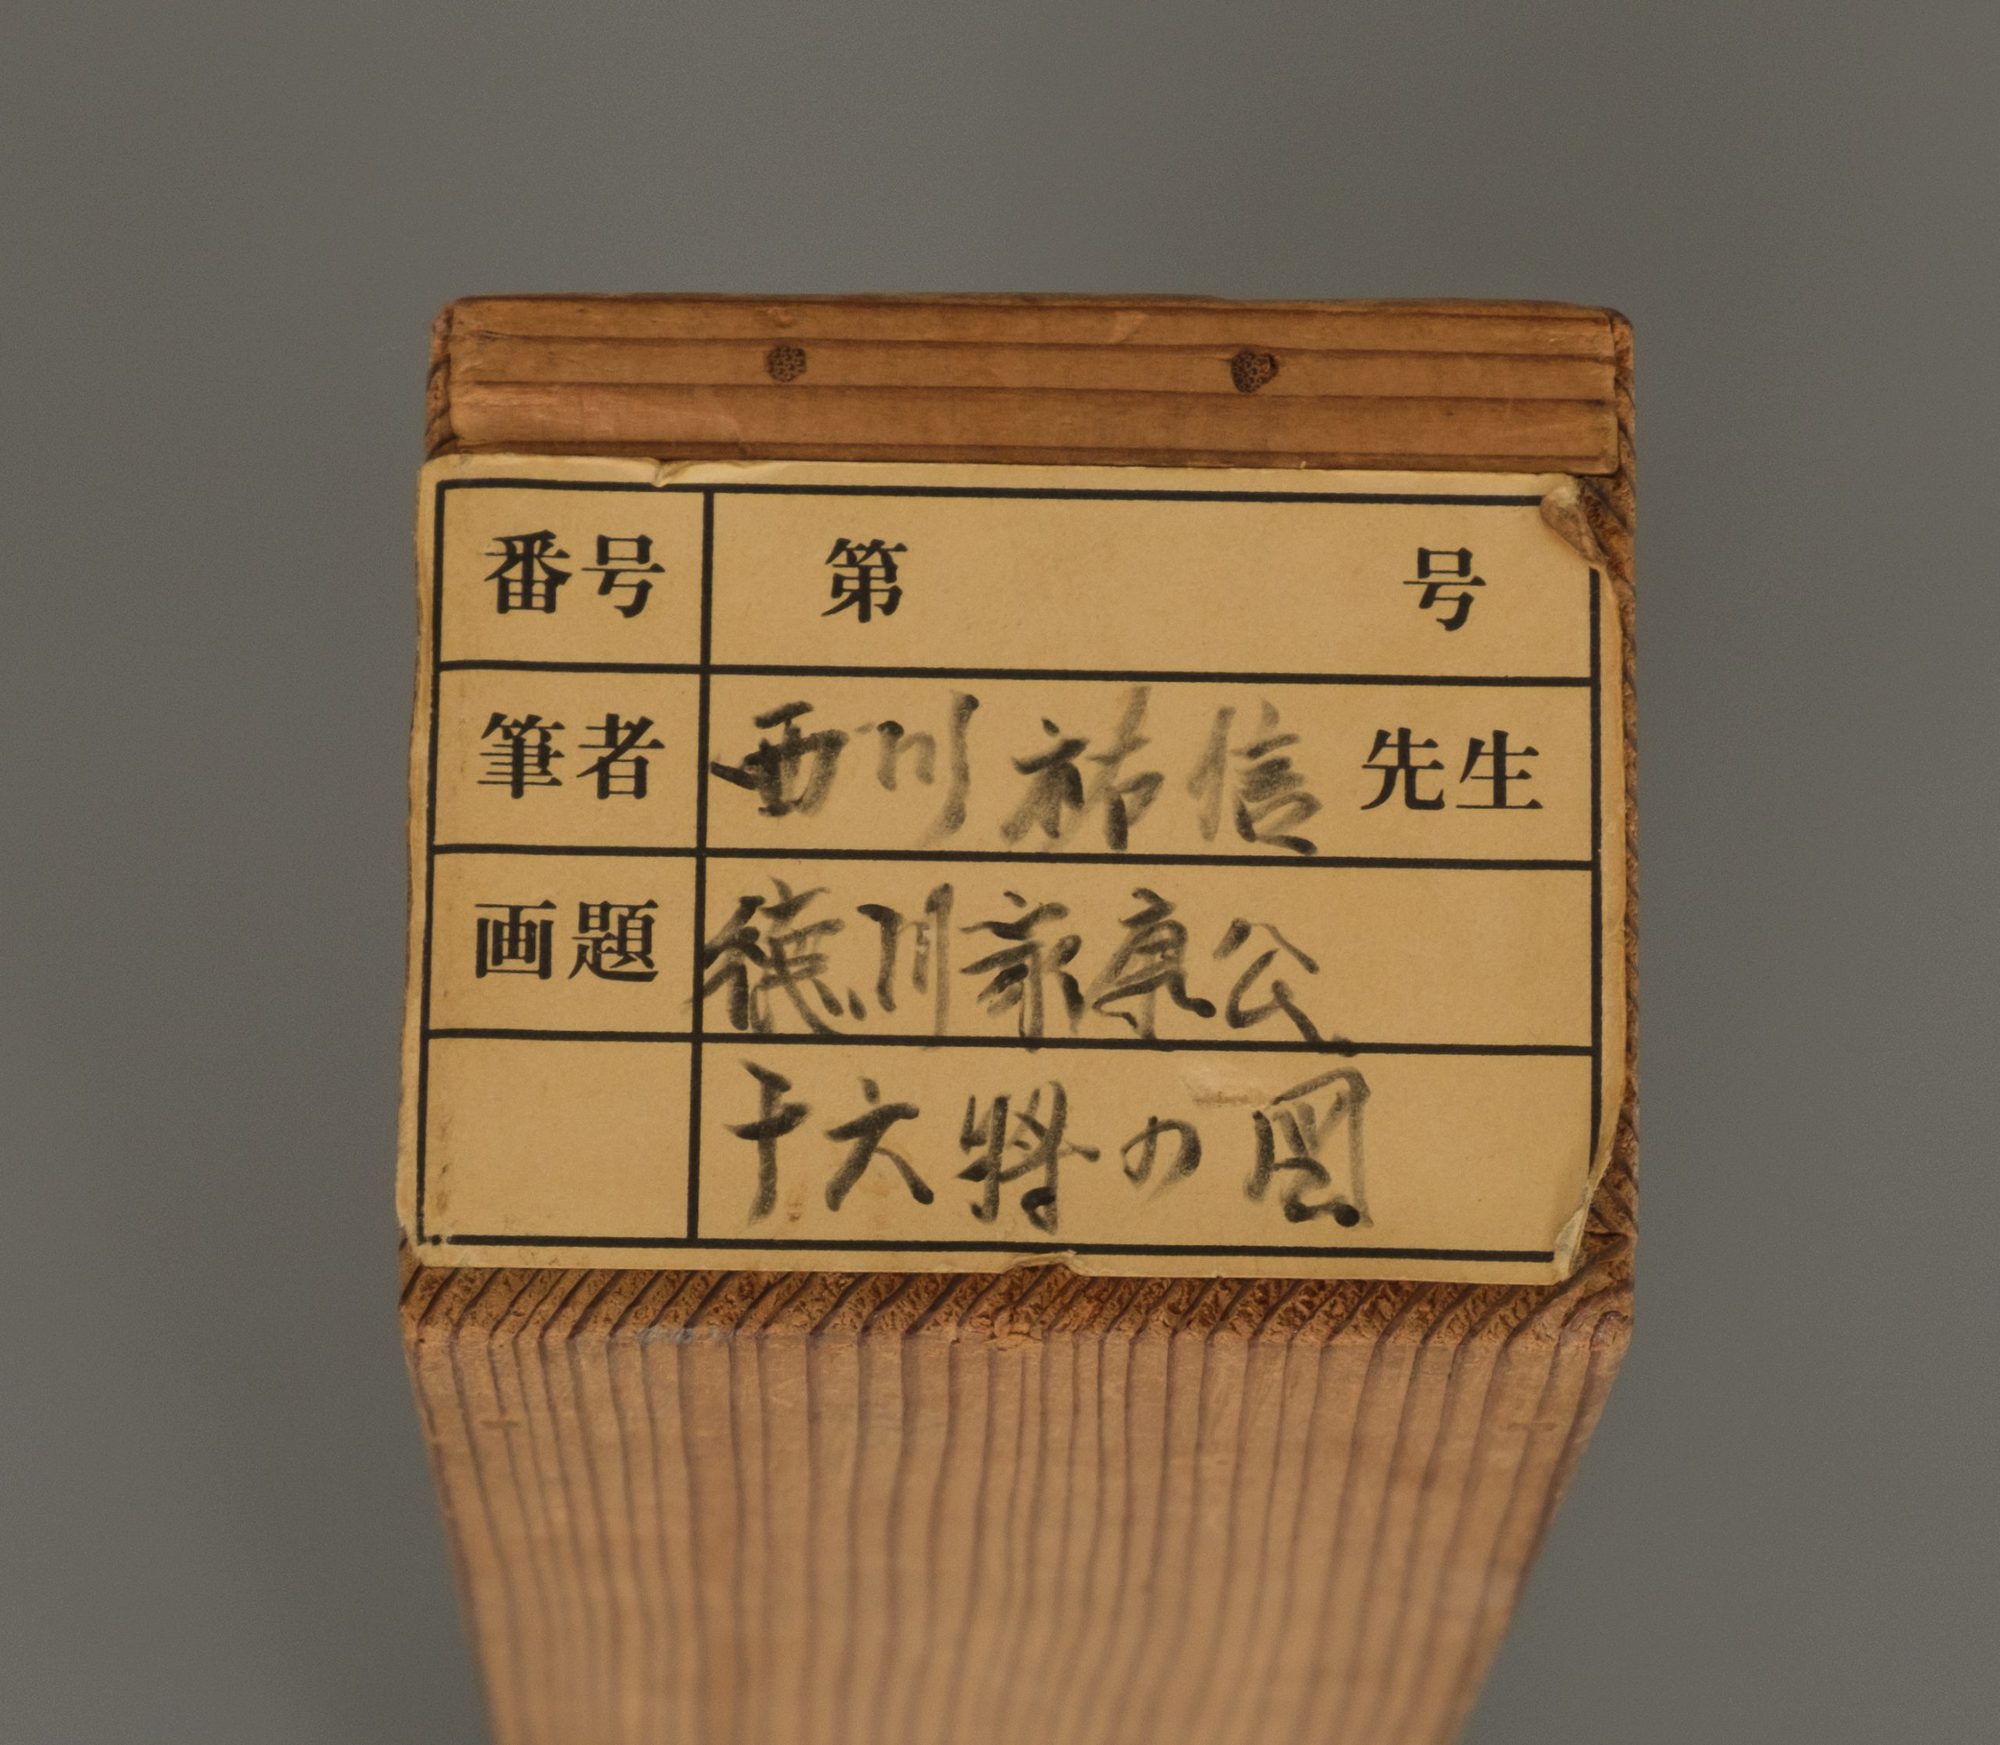 番号 第 号
筆者 西川祐信 先生
画題 徳川家康公
十六将の図